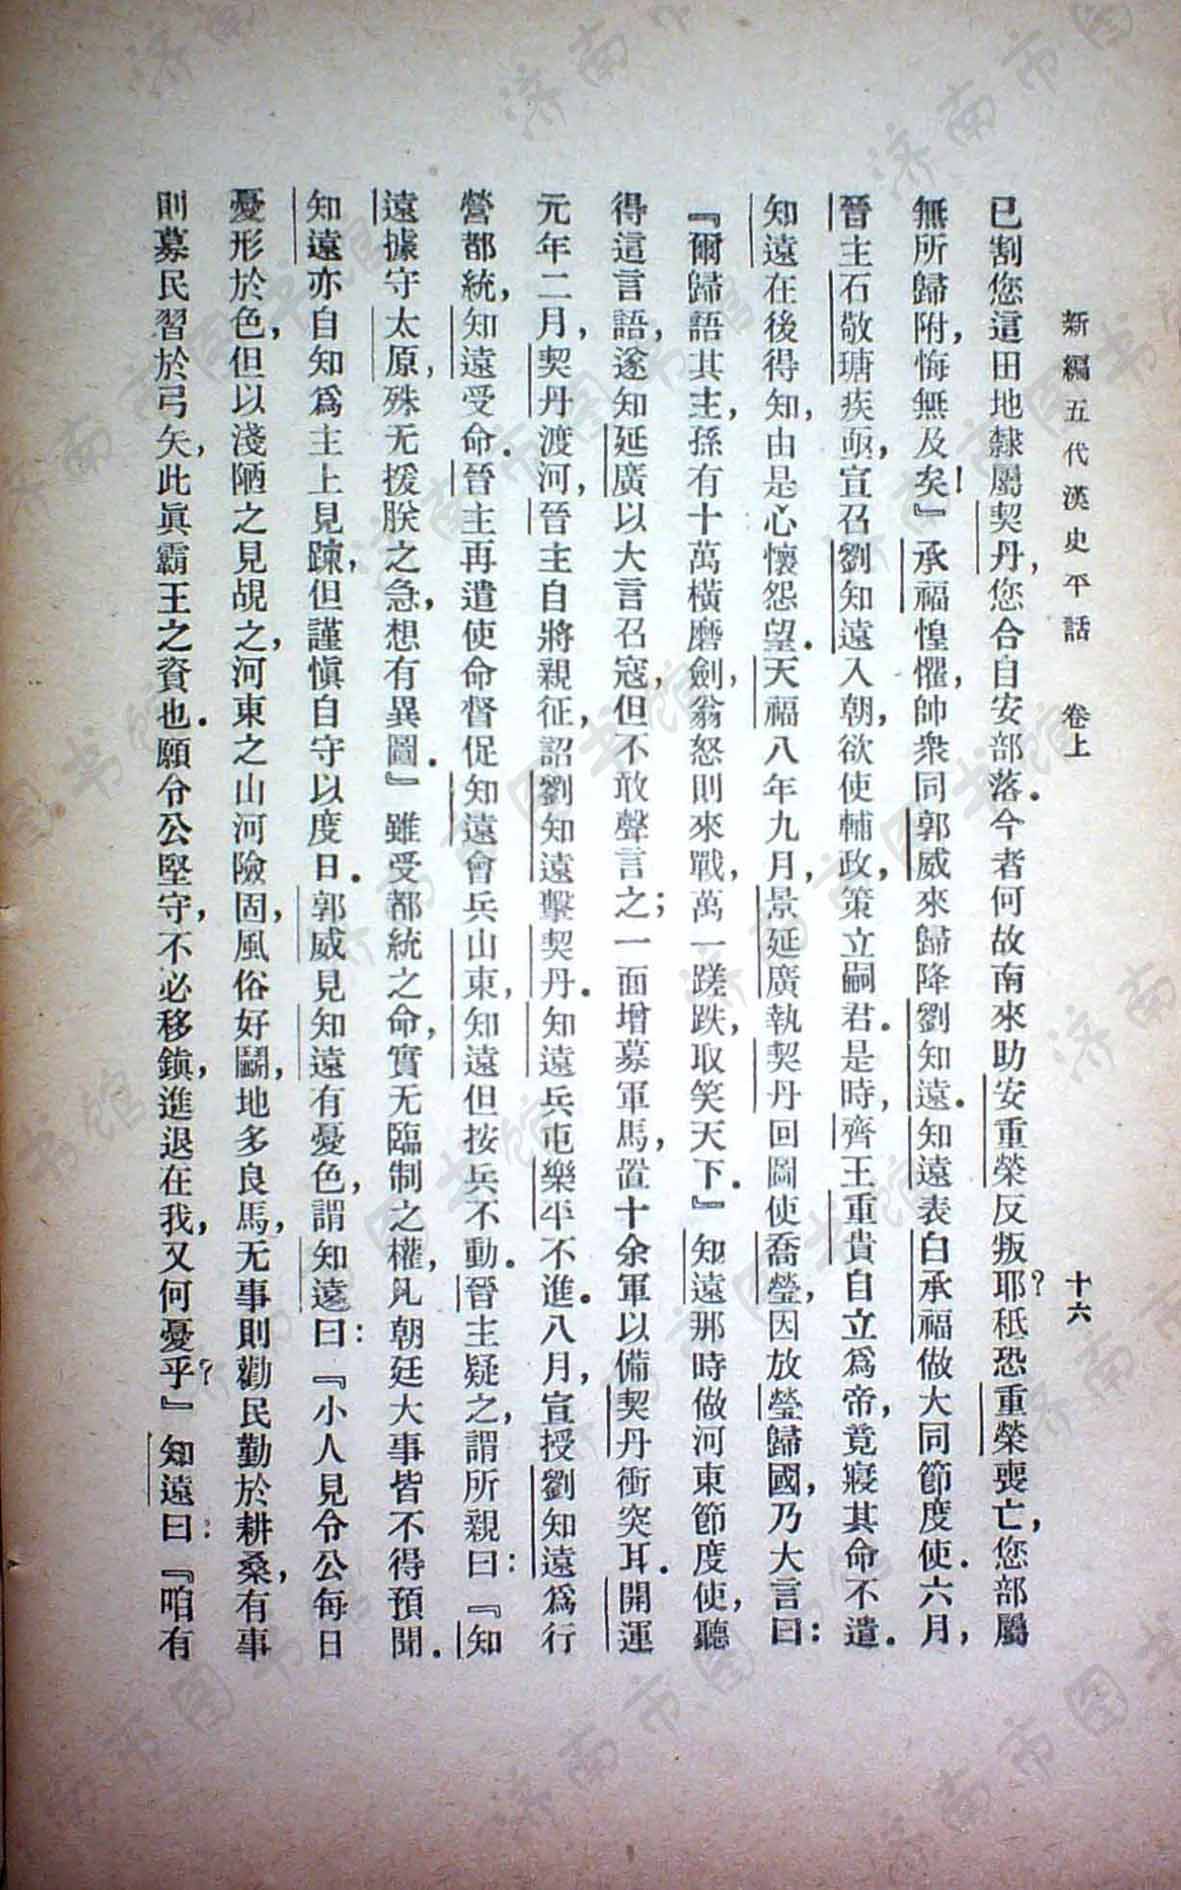 新編五代漢史平話 卷上 十六
已割您這田地隸屬契丹，您合自安部落．今者何故南來助安重榮反叛耶？秪恐重榮喪亡，您部屬
無所歸附，悔無及矣！』承福惶懼，帥衆同郭威來歸降劉知遠．知遠表白承福做大同節度使．六月，
晉主石敬瑭疾亟，宣召劉知遠入朝，欲使輔政，策立嗣君．是時，齊王重貴自立爲帝，竟寢其命不遣．
知遠在後得知，由是心懷怨望．天福八年九月，景延廣執契丹回圖使喬瑩，因放瑩歸國，乃大言曰：
『爾歸語其主，孫有十萬橫磨劍，翁怒則來戰，萬一蹉跌，取笑天下．』知遠那時做河東節度使，聽
得這言語，遂知延廣以大言召寇，但不敢聲言之；一面增募軍馬，置十余軍以備契丹衝突耳．開運
元年二月，契丹渡河，晉主自將親征，詔劉知遠擊契丹．知遠兵屯樂平不進．八月，宣授劉知遠爲行
營都統，知遠受命．晉主再遣使命督促知遠會兵山東，知遠但按兵不動．晉主疑之，謂所親曰：『知
遠據守太原，殊无援朕之急，想有異圖．』雖受都統之命，實无臨制之權，凡朝廷大事皆不得預聞．
知遠亦自知爲主上見踈，但謹愼自守以度日．郭威見知遠有憂色，謂知遠曰：『小人見令公每日
憂形於色，但以淺陋之見覘之，河東之山河險固，風俗好鬭，地多良馬，无事則勸民勤於耕桑，有事
則募民習於弓矢，此眞霸王之資也．願令公堅守，不必移鎮，進退在我，又何憂乎？』知遠曰：『咱有